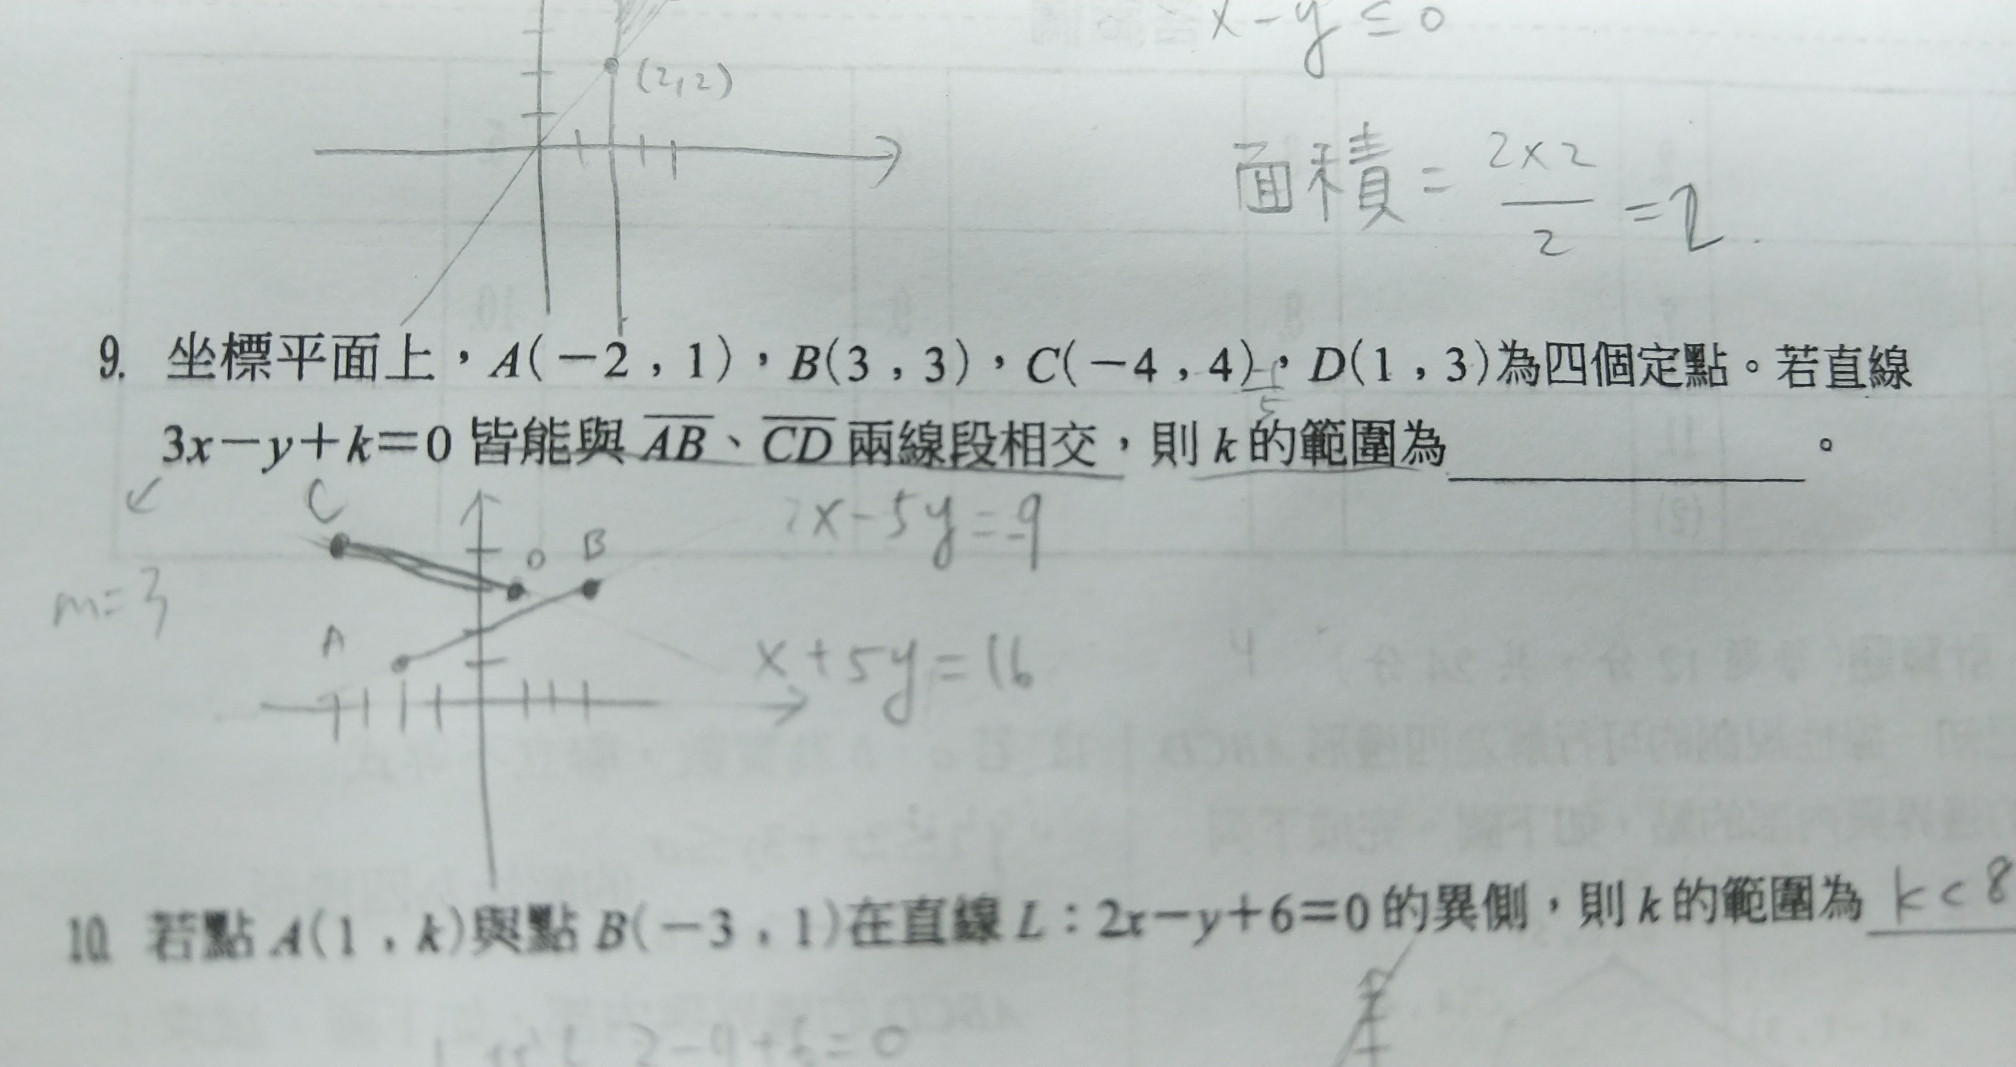 x-y≤0
(2,2)
面積 = 2×2/2 = 2
9. 坐標平面上，A(-2，1)，B(3，3)，C(-4，4)，D(1，3)為四個定點。若直線
3x-y+k=0 皆能與 AB、CD 兩線段相交，則 k 的範圍為。
C
D B
2x-5y=-9
m=3
A
x+5y=16
10. 若點 A(1，k)與點 B(-3，1)在直線 L：2x-y+6=0 的異側，則 k 的範圍為 k<8